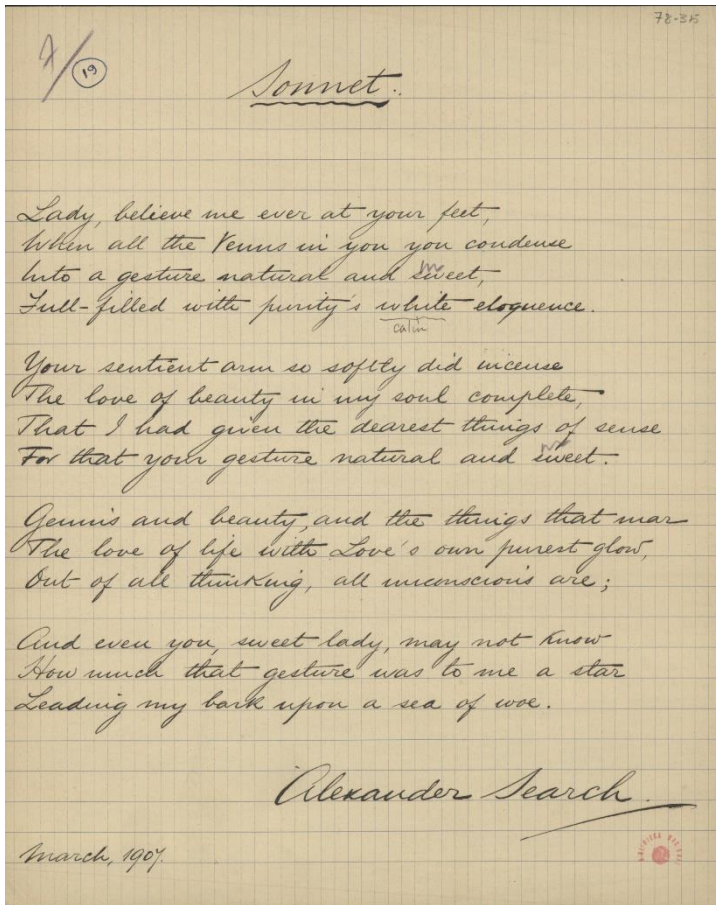 78-38
19
Sonnet.
Lady, believe me ever at your feet,
When all the Venus in you you condense
Into a gesture natural and sweet,
Full-filled with purity's white eloquence.
calm
Your sentient arm so softly did incense
The love of beauty in my soul complete,
That I had given the dearest things of sense
For that your gesture natural and sweet.
Genius and beauty, and the things that mar
The love of life with Love's own purest glow,
Out of all thinking, all unconscious are;
And even you, sweet lady, may not know
How much that gesture was to me a star
Leading my bark upon a sea of woe.
Alexander Search.
March, 1907.